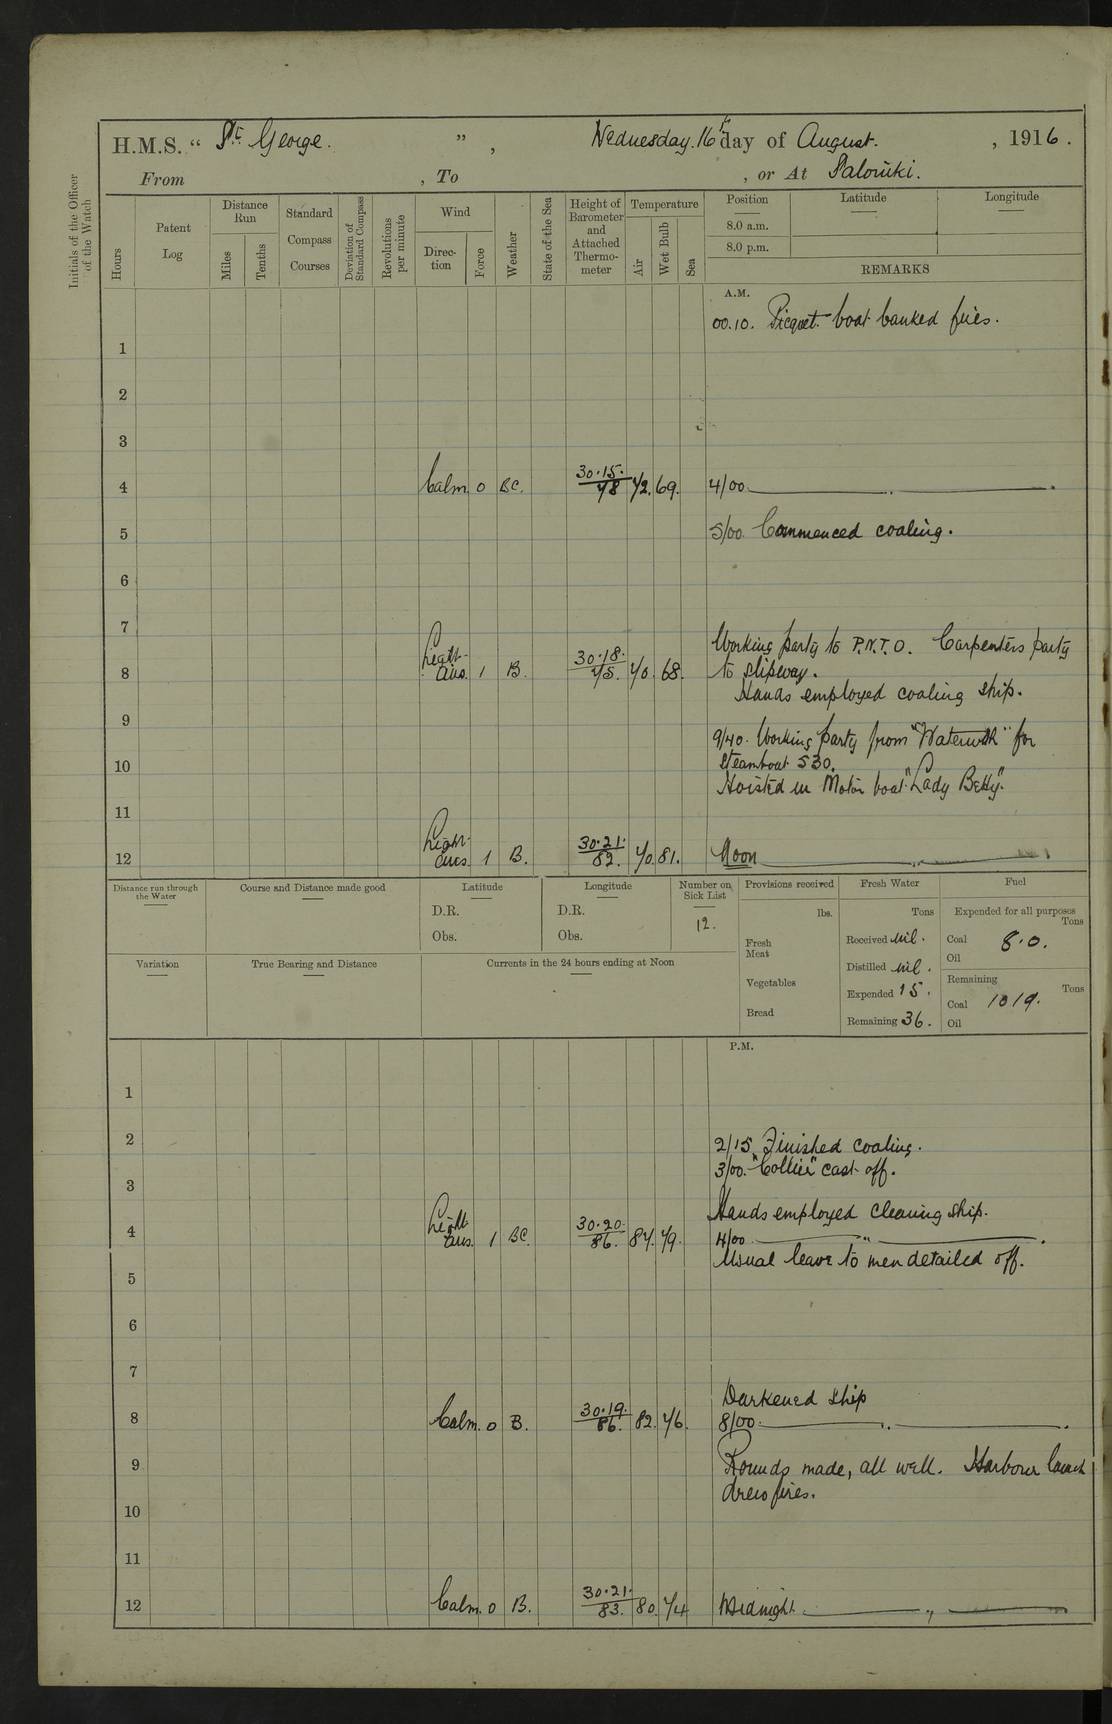 H.M.S. “ St. George. ” , Wednesday. 16th day of August. , 1916.
From , To , or At Salonüki.
Initials of the Officer of the Watch
Hours
Patent Log
Distance Run
Miles
Tenths
Standard Compass Courses
Deviation of Standard Compass
Revolutions per minute
Wind
Direc-tion
Force
Weather
State of the Sea
Height of Barometer and Attached Thermo-meter
Temperature
Air
Wet Bulb
Sea
Position
Latitude
Longitude
8.0 a.m.
8.0 p.m.
REMARKS
A.M.
00.10. Picquet boat banked fires.
1
2
3
4 Calm. 0 BC. 30.15. 78 72. 69. 4/00 ,,
5 5/00. Commenced coaling.
6
7
Working party to P.N.T.O. Carpenters party
8 Light airs. 1 B. 30.18. 75. 70. 68. to slipway.
Hands employed coaling ship.
9
9/40. Working party from "Waterwitch" for
10 steamboat 530.
Hoisted in Motor boat "Lady Betty".
11
12 Light airs. 1 B. 30.21. 82. 70. 81. Noon ,,
Distance run through the Water
Course and Distance made good
Latitude
D.R.
Obs.
Longitude
D.R.
Obs.
Number on Sick List
12.
Provisions received
lbs.
Fresh Meat
Vegetables
Bread
Fresh Water
Tons
Received nil.
Distilled nil.
Expended 15.
Remaining 36.
Fuel
Expended for all purposes
Tons
Coal 8.0.
Oil
Remaining
Tons
Coal 1019.
Oil
Variation
True Bearing and Distance
Currents in the 24 hours ending at Noon
P.M.
1
2 2/15. Finished coaling.
3/00. "Collier" cast off.
3
Hands employed cleaning ship.
4 Light airs. 1 BC. 30.20. 86. 84. 79. 4/00 ,,
Usual leave to men detailed off.
5
6
7
Darkened ship
8 Calm. 0 B. 30.19. 86. 82. 76. 8/00. ,,
9 Rounds made, all well. Harbour launch
drew fires.
10
11
12 Calm. 0 B. 30.21. 83. 80. 74 Midnight ,,